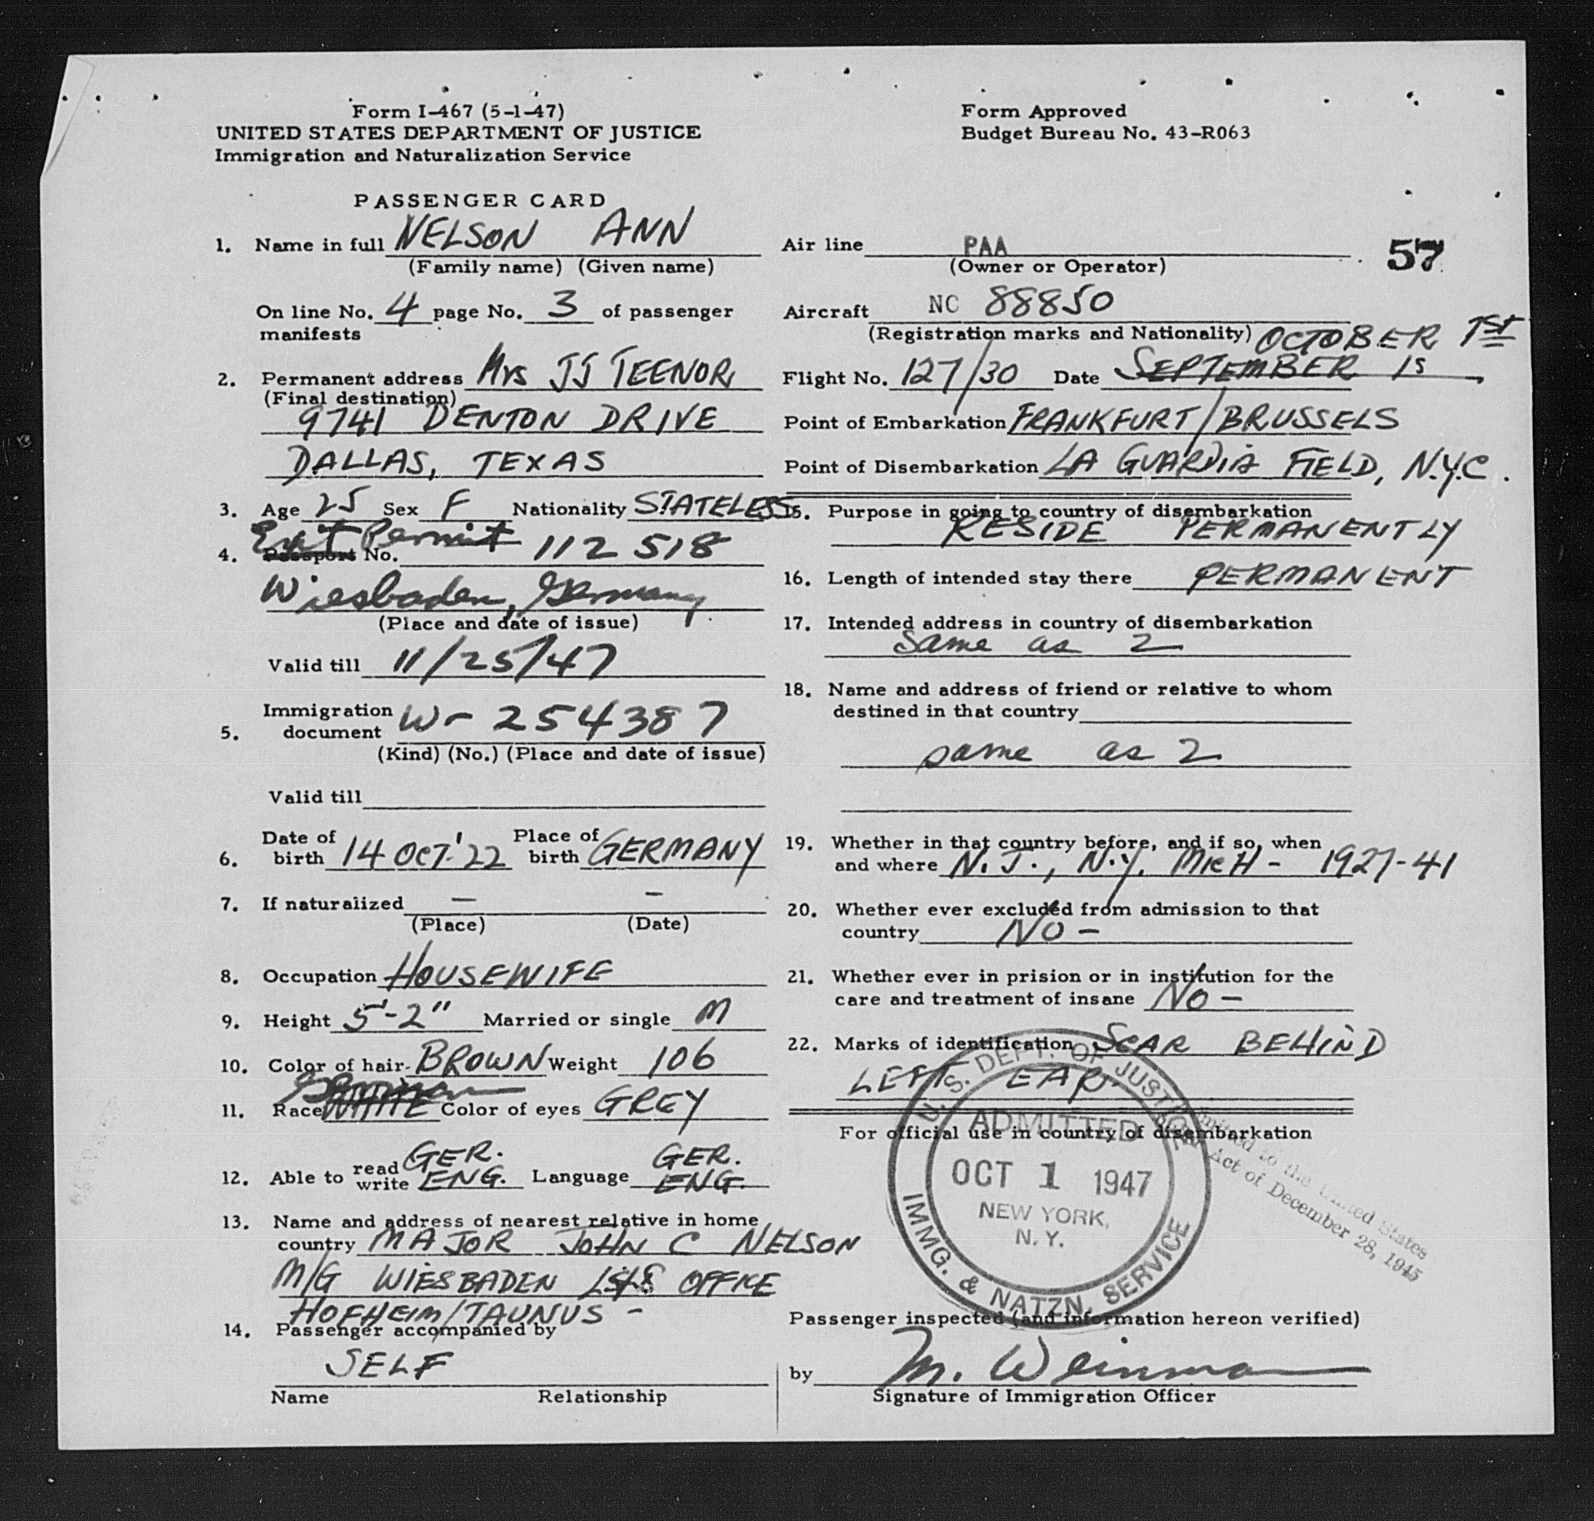 Form I-467 (5-1-47)
UNITED STATES DEPARTMENT OF JUSTICE
Immigration and Naturalization Service
PASSENGER CARD
1. Name in full NELSON ANN
(Family name) (Given name)
On line No. 4 page No. 3 of passenger
manifests
2. Permanent address Mrs JJ TEENOR
(Final destination)
9741 DENTON DRIVE
DALLAS, TEXAS
3. Age 25 Sex F Nationality STATELESS
Exit Permit
4. Passport No. 112 518
Wiesbaden, Germany
(Place and date of issue)
Valid till 11/25/47
Immigration
5. document W- 254387
(Kind) (No.) (Place and date of issue)
Valid till
6. Date of birth 14 OCT. '22 Place of birth GERMANY
7. If naturalized — -
(Place) (Date)
8. Occupation HOUSEWIFE
9. Height 5'-2" Married or single M
10. Color of hair BROWN Weight 106
German
11. Race WHITE Color of eyes GREY
12. Able to read write GER. ENG. Language GER. ENG.
13. Name and address of nearest relative in home
country MAJOR JOHN C NELSON
M/G WIESBADEN OFFICE
HOFHEIM/TAUNUS -
14. Passenger accompanied by
SELF
Name Relationship
Form Approved
Budget Bureau No. 43-R063
Air line PAA
(Owner or Operator)
57
Aircraft NC 88850
(Registration marks and Nationality) OCTOBER 1ST
Flight No. 127/30 Date SEPTEMBER
Point of Embarkation FRANKFURT/BRUSSELS
Point of Disembarkation LA GUARDIA FIELD, N.Y.C.
15. Purpose in going to country of disembarkation
RESIDE PERMANENTLY
16. Length of intended stay there PERMANENT
17. Intended address in country of disembarkation
Same as 2
18. Name and address of friend or relative to whom
destined in that country
same as 2
19. Whether in that country before, and if so, when
and where N.J., N.Y. MICH - 1927-41
20. Whether ever excluded from admission to that
country NO -
21. Whether ever in prision or in institution for the
care and treatment of insane No -
22. Marks of identification SCAR BEHIND
LEFT EAR
For official use in country of disembarkation
U. S. DEPT. OF JUSTICE
ADMITTED
OCT 1 1947
NEW YORK,
N. Y.
IMMG. & NATZN. SERVICE
Admitted to the United States
Act of December 28, 1945
Passenger inspected (and information hereon verified)
by M. Weinman
Signature of Immigration Officer